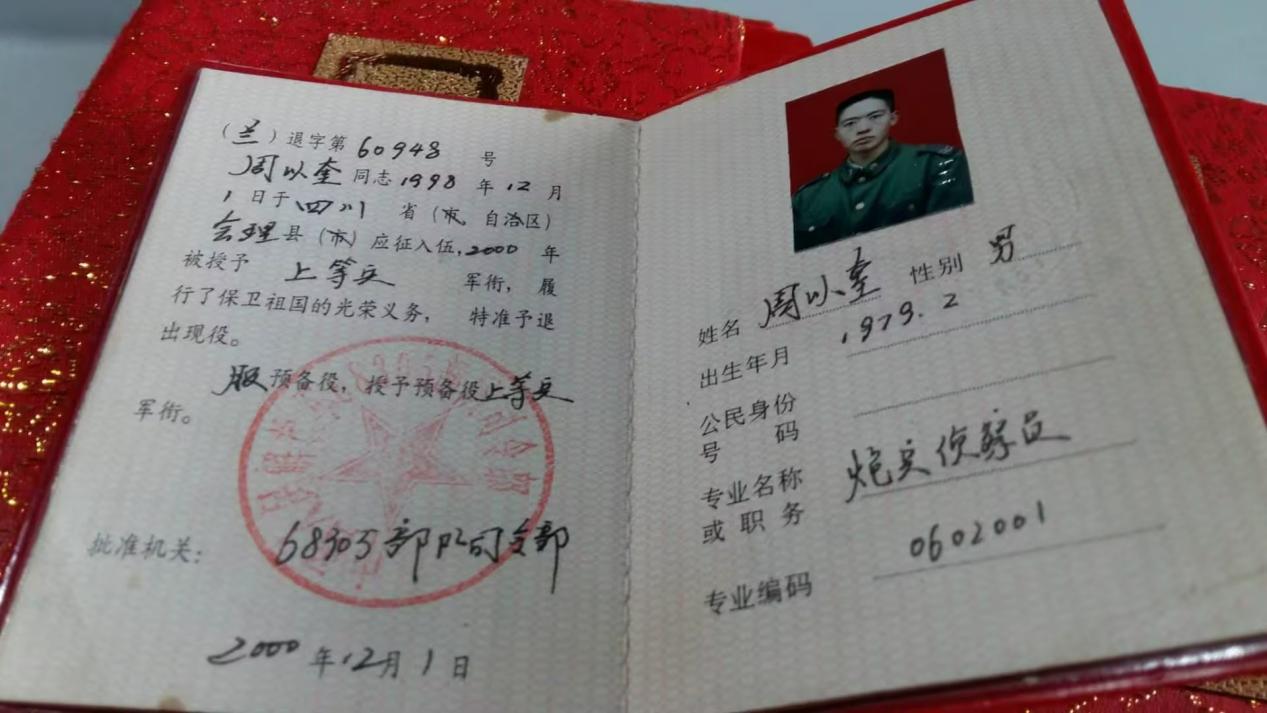 （兰）退字第 60948 号
周以奎 同志 1998 年 12 月
1 日于 四川 省（市、自治区）
会理 县（市）应征入伍，2000 年
被授予 上等兵 军衔，履
行了保卫祖国的光荣义务， 特准予退
出现役。
服 预备役，授予预备役 上等兵
军衔。
批准机关： 部队司令部
2000 年 12 月 1 日
姓名 周以奎 性别 男
出生年月 1979.2
公民身份
号 码
专业名称
或 职 务 炮兵侦察员
专业编码 0602001